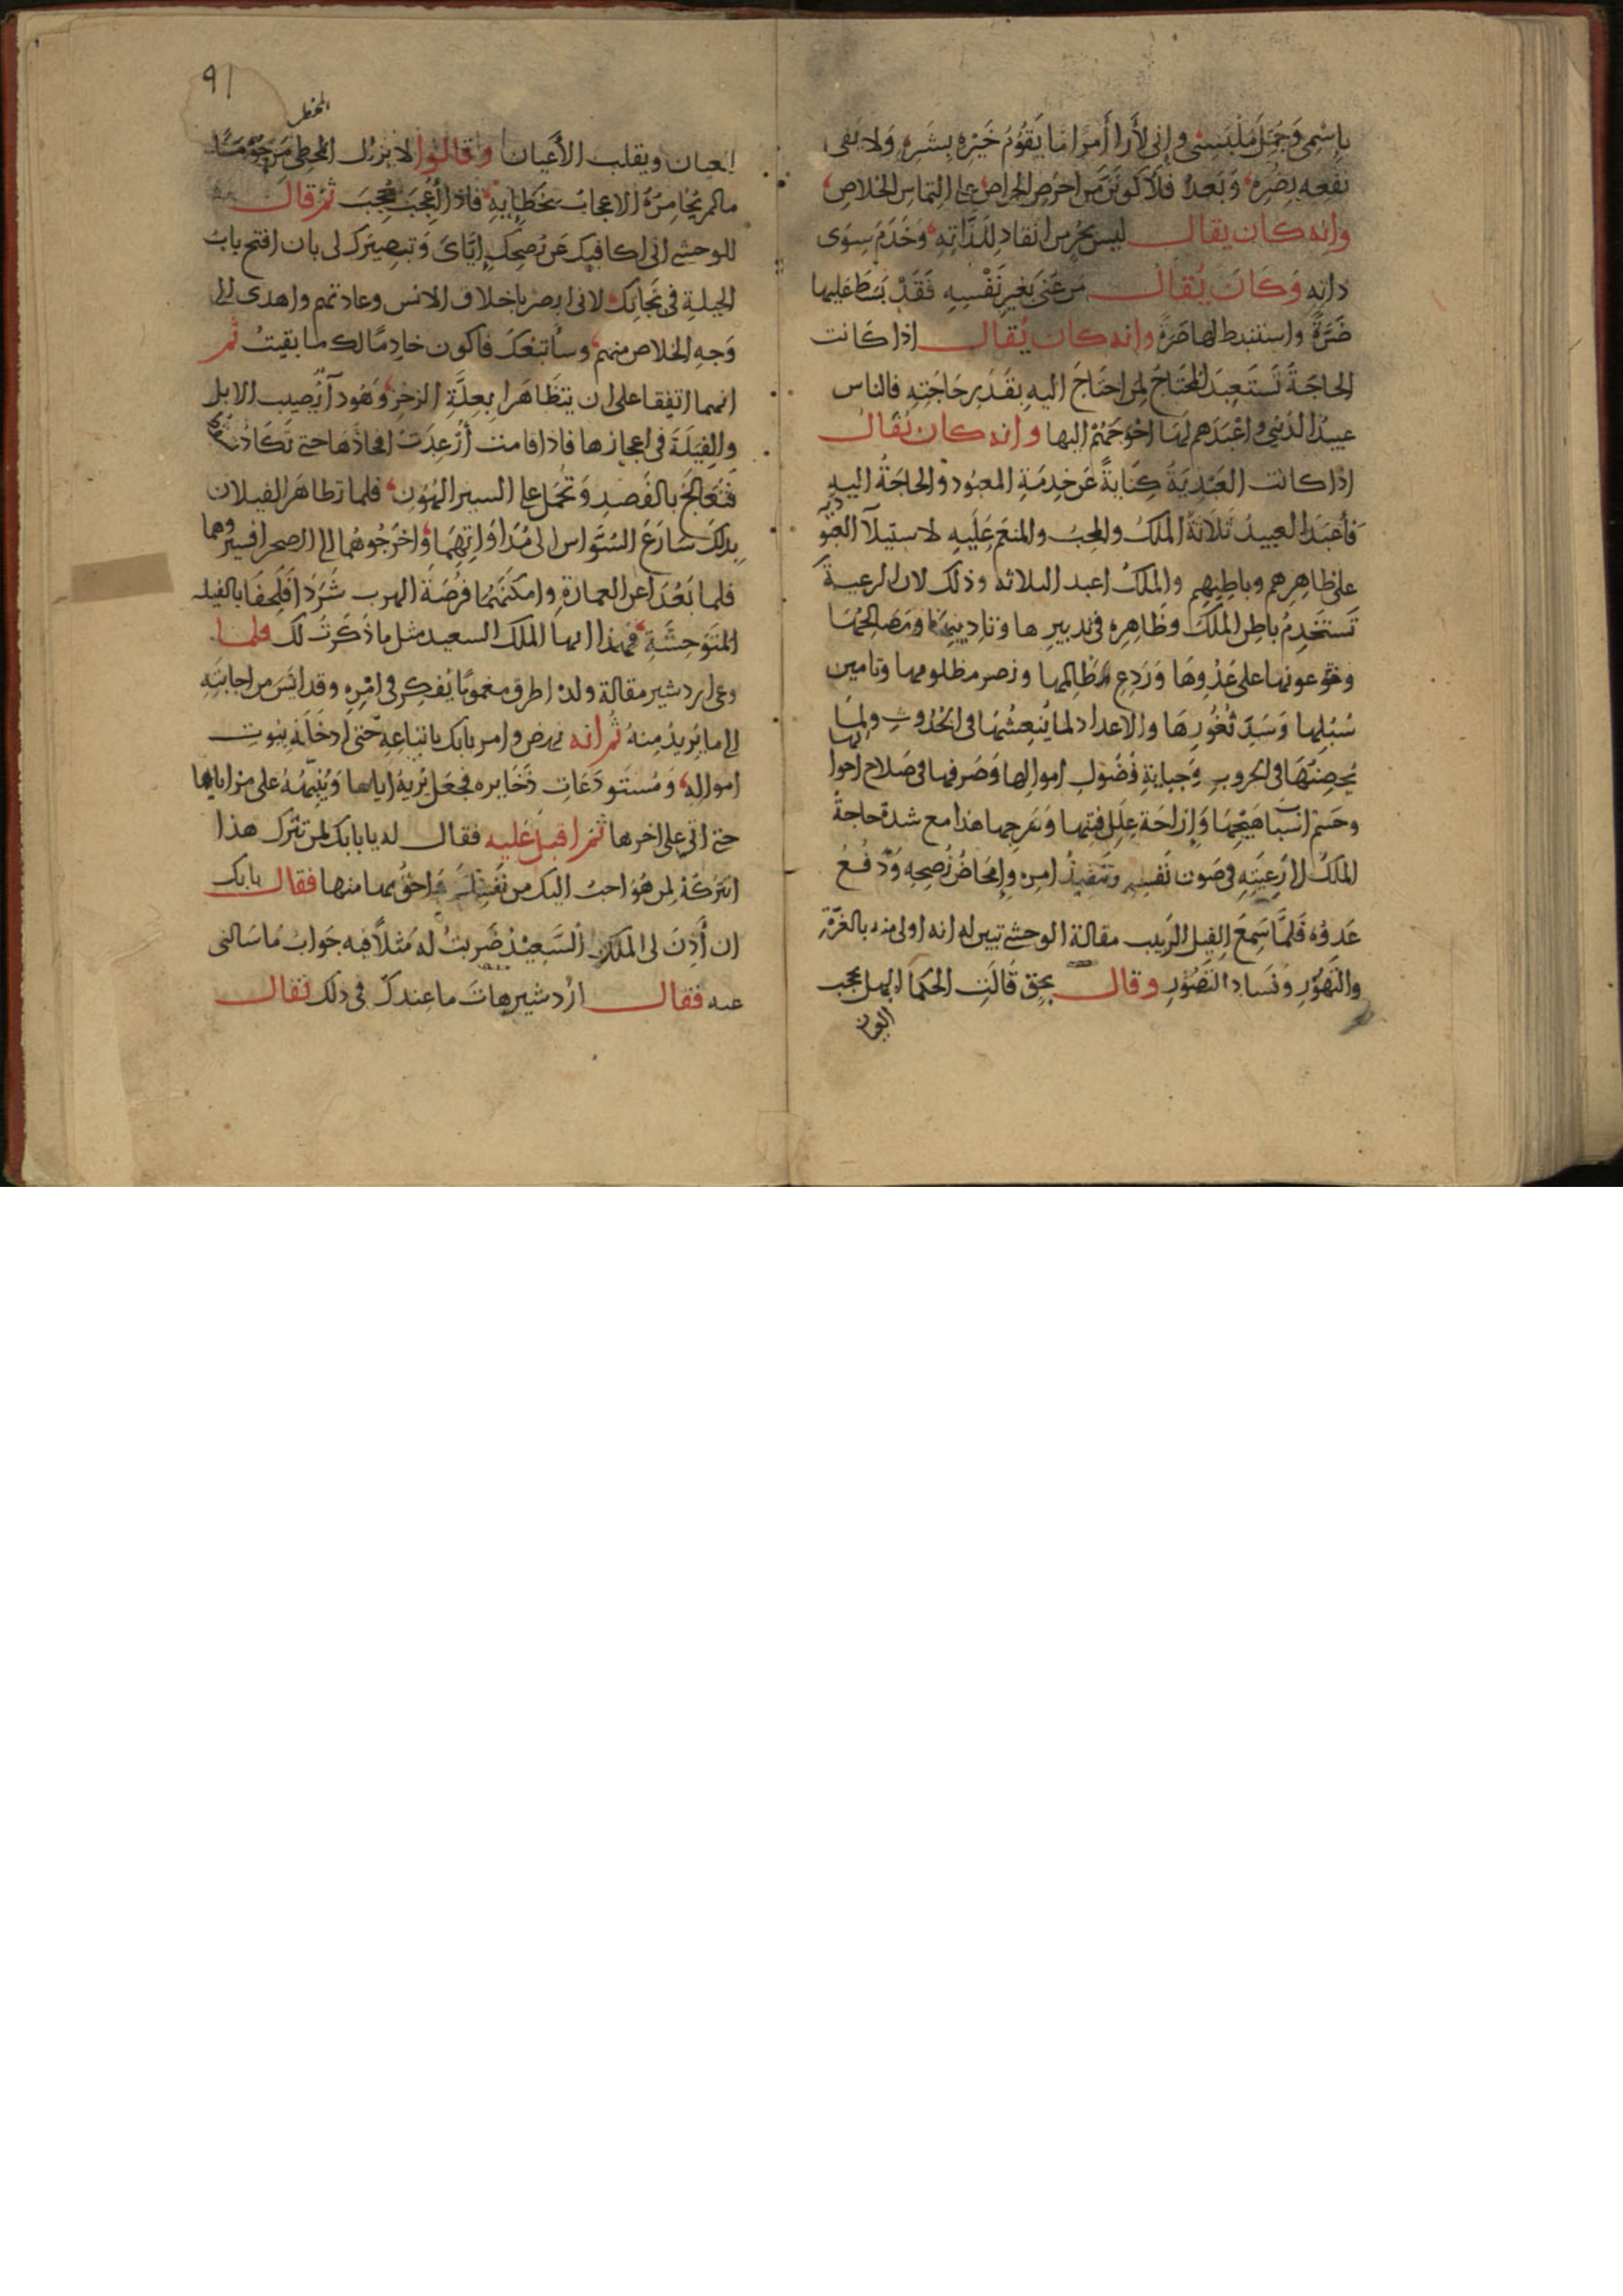 باسمى وَجُمِّلَ مَلْبَسِى وإنى لأرا أمرًا مَا يَقوُمُ خَيْرُه بِشَرِه وَلا يَفى
نَفعه بِضُرِه وَبَعدُ فلأكونَنَّ من احْرَصِ الحراص على التماس الخلاص
وانه كان يقال ليس بحُرٍ من انقاد لِلَذَّاتِه وَخَدَمَ سِوَى
ذاتِه وَكَانَ يُقال مَن عُنى بَغيرِ نَفْسِهِ فَقَدْ بَسَطَ عليها
ضَرَّةً واستنبط لها ضَرَّةً وانه كان يُقال اذا كَانت
الحاجَةُ تَستَعبِدُ المحتاجَ لِمَن احتَاجَ اليه بقَدَرِ حَاجَتِهِ فالناس
عبيدُ الدُنيى واعْبَدهم لهَا احْوَجَهُم اليها وانه كان يُقالُ
اذا كانت العَبْدِيَةُ كِنَايةً عَن خِدمَةِ المعبُود والحاجَةُ اليه
فأعبَدُ العبيدِ ثَلاثة الملكُ والمحِبُ والمنعَم عَلَيهِ لاستيلآ العبُو
دية
على ظاهِرِهم وباطِنِهِم والملكُ اعبد الثلاثه وذلك لان الرعية
تَستَخدِمُ باطِن الملكِ وظَاهِره فى تدبيرِها وتاديبِهَا ومَصَالِحهَا
وهَو عونها على عَدُوِهَا وَرَدعِ ظَالِمها ونصر مظلومها وتامين
سُبُلِها وَسَدِّ ثُغُورِهَا والاعداد لما يُنعِشُها فى الجُدُوبِ ولِمَا
يُحصِنُهَا فى الحروبِ وَجِبايةِ فُضُولِ اموالِها وَصَرفِها فى صَلاحِ احوا
لها
وحَسْمِ اسْباب هَيْجِهَا وَإزاحَةِ عِلَلِ فِتَنِها وَهَرجها هذا مع شدة حاجة
الملكُ لأرَعِيَتِه فى صَون نَفسِه وَتنفيذُ امره وإمحَاضُ نُصحِه وَدَفعُ
عَدوُه فَلمَّا سَمِعَ الفِيل الرَبيب مقالة الوحشى تبين له انه اولى منه بالغرَّة
والتَهَوُّرِ وفَسَادِ التَصَوُّرِ وقال بحِق قَالَتِ الحكمَآ الجهل يحجب
العيان
٩١
العيان ويقلب الأعيان وقالوا لا يزال المخطِى مَرجُوًّا مَا
المخطى
ما لم يُخامِرُه الاعجابُ بخَطائِهِ فاذا أُعْجِبَ حُجِبَ ثم قال
للوحشى انى اكافيك عَن نُصحِك إيّاىَ وَتبصيرك لى بان افتح باب
الحيلةِ فى نَجَاتِكَ لانى ابصر باخلاق الانس وعادتهم واهدى الى
وَجهِ الخلاص منهم وسَأتبعُكَ فأكون خادِمًا لك ما بقيتُ ثم
انهما اتفقا على ان يتظَاهَرا بِعِلَّةِ الزحز وَهُو دآءٌ يُصِيب الابل
والفِيَلَةَ فى اعجازِها فاذا قامت أُرْعِدَتْ افخاذُهَا حتى تَكَادُ
فتُعَالَجُ بالفَصدِ وَتُحمَل على السيرِ الهُوَن فلما تظاهَر الفيلان
بذلكَ سَارَعَ السُوَّاس الى مُدَاوَاتِهِمَا واخرَجُوهُما الى الصحرا فسيروهما
فلما بَعُدَا عن العمارة وامكنَتهُما فُرصَة الهرب شَرَدَا فَلَحِقَا بالفيله
المُتَوَحِشَةِ فهذا ايها الملك السعيد مثل ما ذَكَرتُ لك فلما
وعى اردشير مقالة ولده اطرق مغمومًا يُفَكِر فى امرِه وقد ائِسَ من اجابَتِهِ
الى ما يُريدُ مِنهُ ثم انه نهض وامر بابك باتباعِهِ حَتى ادخَلَهُ بيُوتِ
اموالِه وَمُستَودَعَاتِ ذَخَايره فجعل يُرِيهُ اياها وَيُنَبِّهُهُ على مزاياها
حتى اتى على اخرها ثم اقبل عَليه فقال له يا بابك لمن تترك هذا
اتترُكُهُ لِمن هُوَ احبُ اليك من نَفسِكَ وَاحَقُ بها منها فقال بابك
ان أَذِنَ لى الملكُ السَّعِيْدُ ضَرَبتُ له مَثلاً فيه جَوابُ مَا سَالنى
عنه فقال ازدشير هاتَ ما عندك فى ذلك فقال